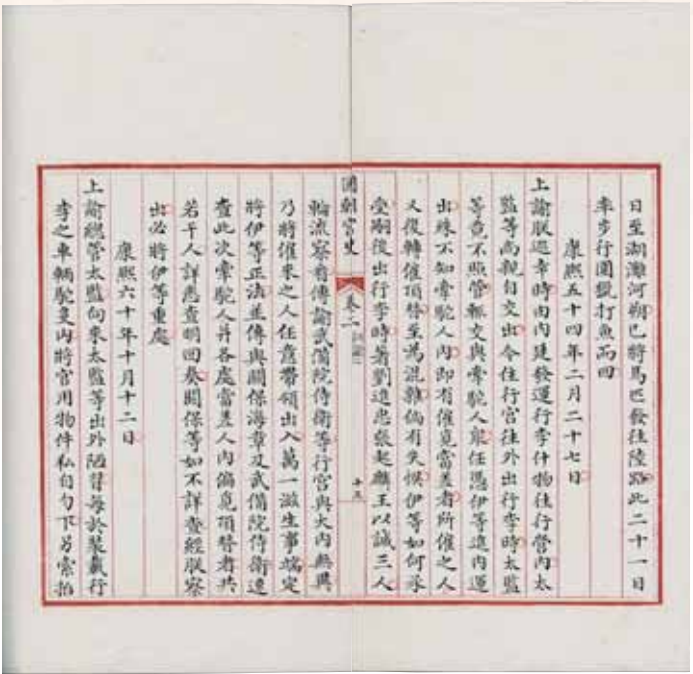 日至湖灘河朔已將馬匹發往陸路此二十一日
率步行圍獵打魚而回
康熙五十四年二月二十七日
上諭朕巡幸時由內建發運行李什物往行營內太
監等尚親自交出今住行宮往外出行李時太監
等竟不照管輒交與牽駝人衆任憑伊等進內運
出殊不知牽駝人內即有催覓當差者所催之人
又復轉催頂替至為混雜倘有失悞伊等如何承
受嗣後出行李時著劉進忠張起麟王以誠三人
國朝宮史
卷二
十五
輪流察看傳諭武備院侍衛等行宮與大內無異
乃將催來之人任意帶領出入萬一滋生事端定
將伊等正法並傳與關保海章及武備院侍衛遵
查此次牽駝人并各處當差人內偏覓頂替者共
若干人詳悉查明回奏關保等如不詳查經朕察
出必將伊等重處
康熙六十年十月十二日
上諭總管太監向來太監等出外陋習每於裝載行
李之車輛駝隻內將官用物件私自勻下另索拍